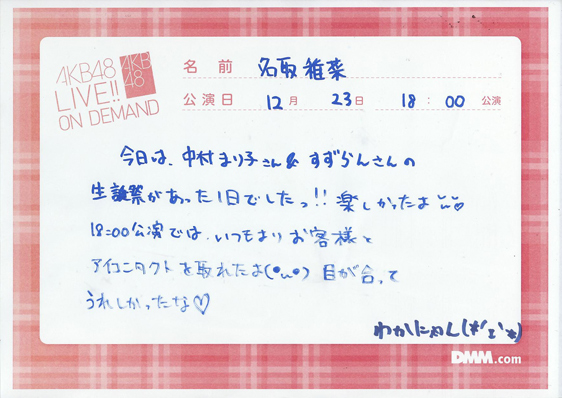 AKB48
LIVE!!
ON DEMAND
AKB
48
名前 名取稚菜
公演日 12月 23日 18:00 公演
今日は、中村まり子さん&すずらんさんの
生誕祭があった1日でしたっ!! 楽しかったよ♡
18:00公演では、いつもよりお客様と
アイコンタクトを取れたよ(•ω•) 目が合って
うれしかったな♡
わかにゃん(*'ェ'*)
DMM.com